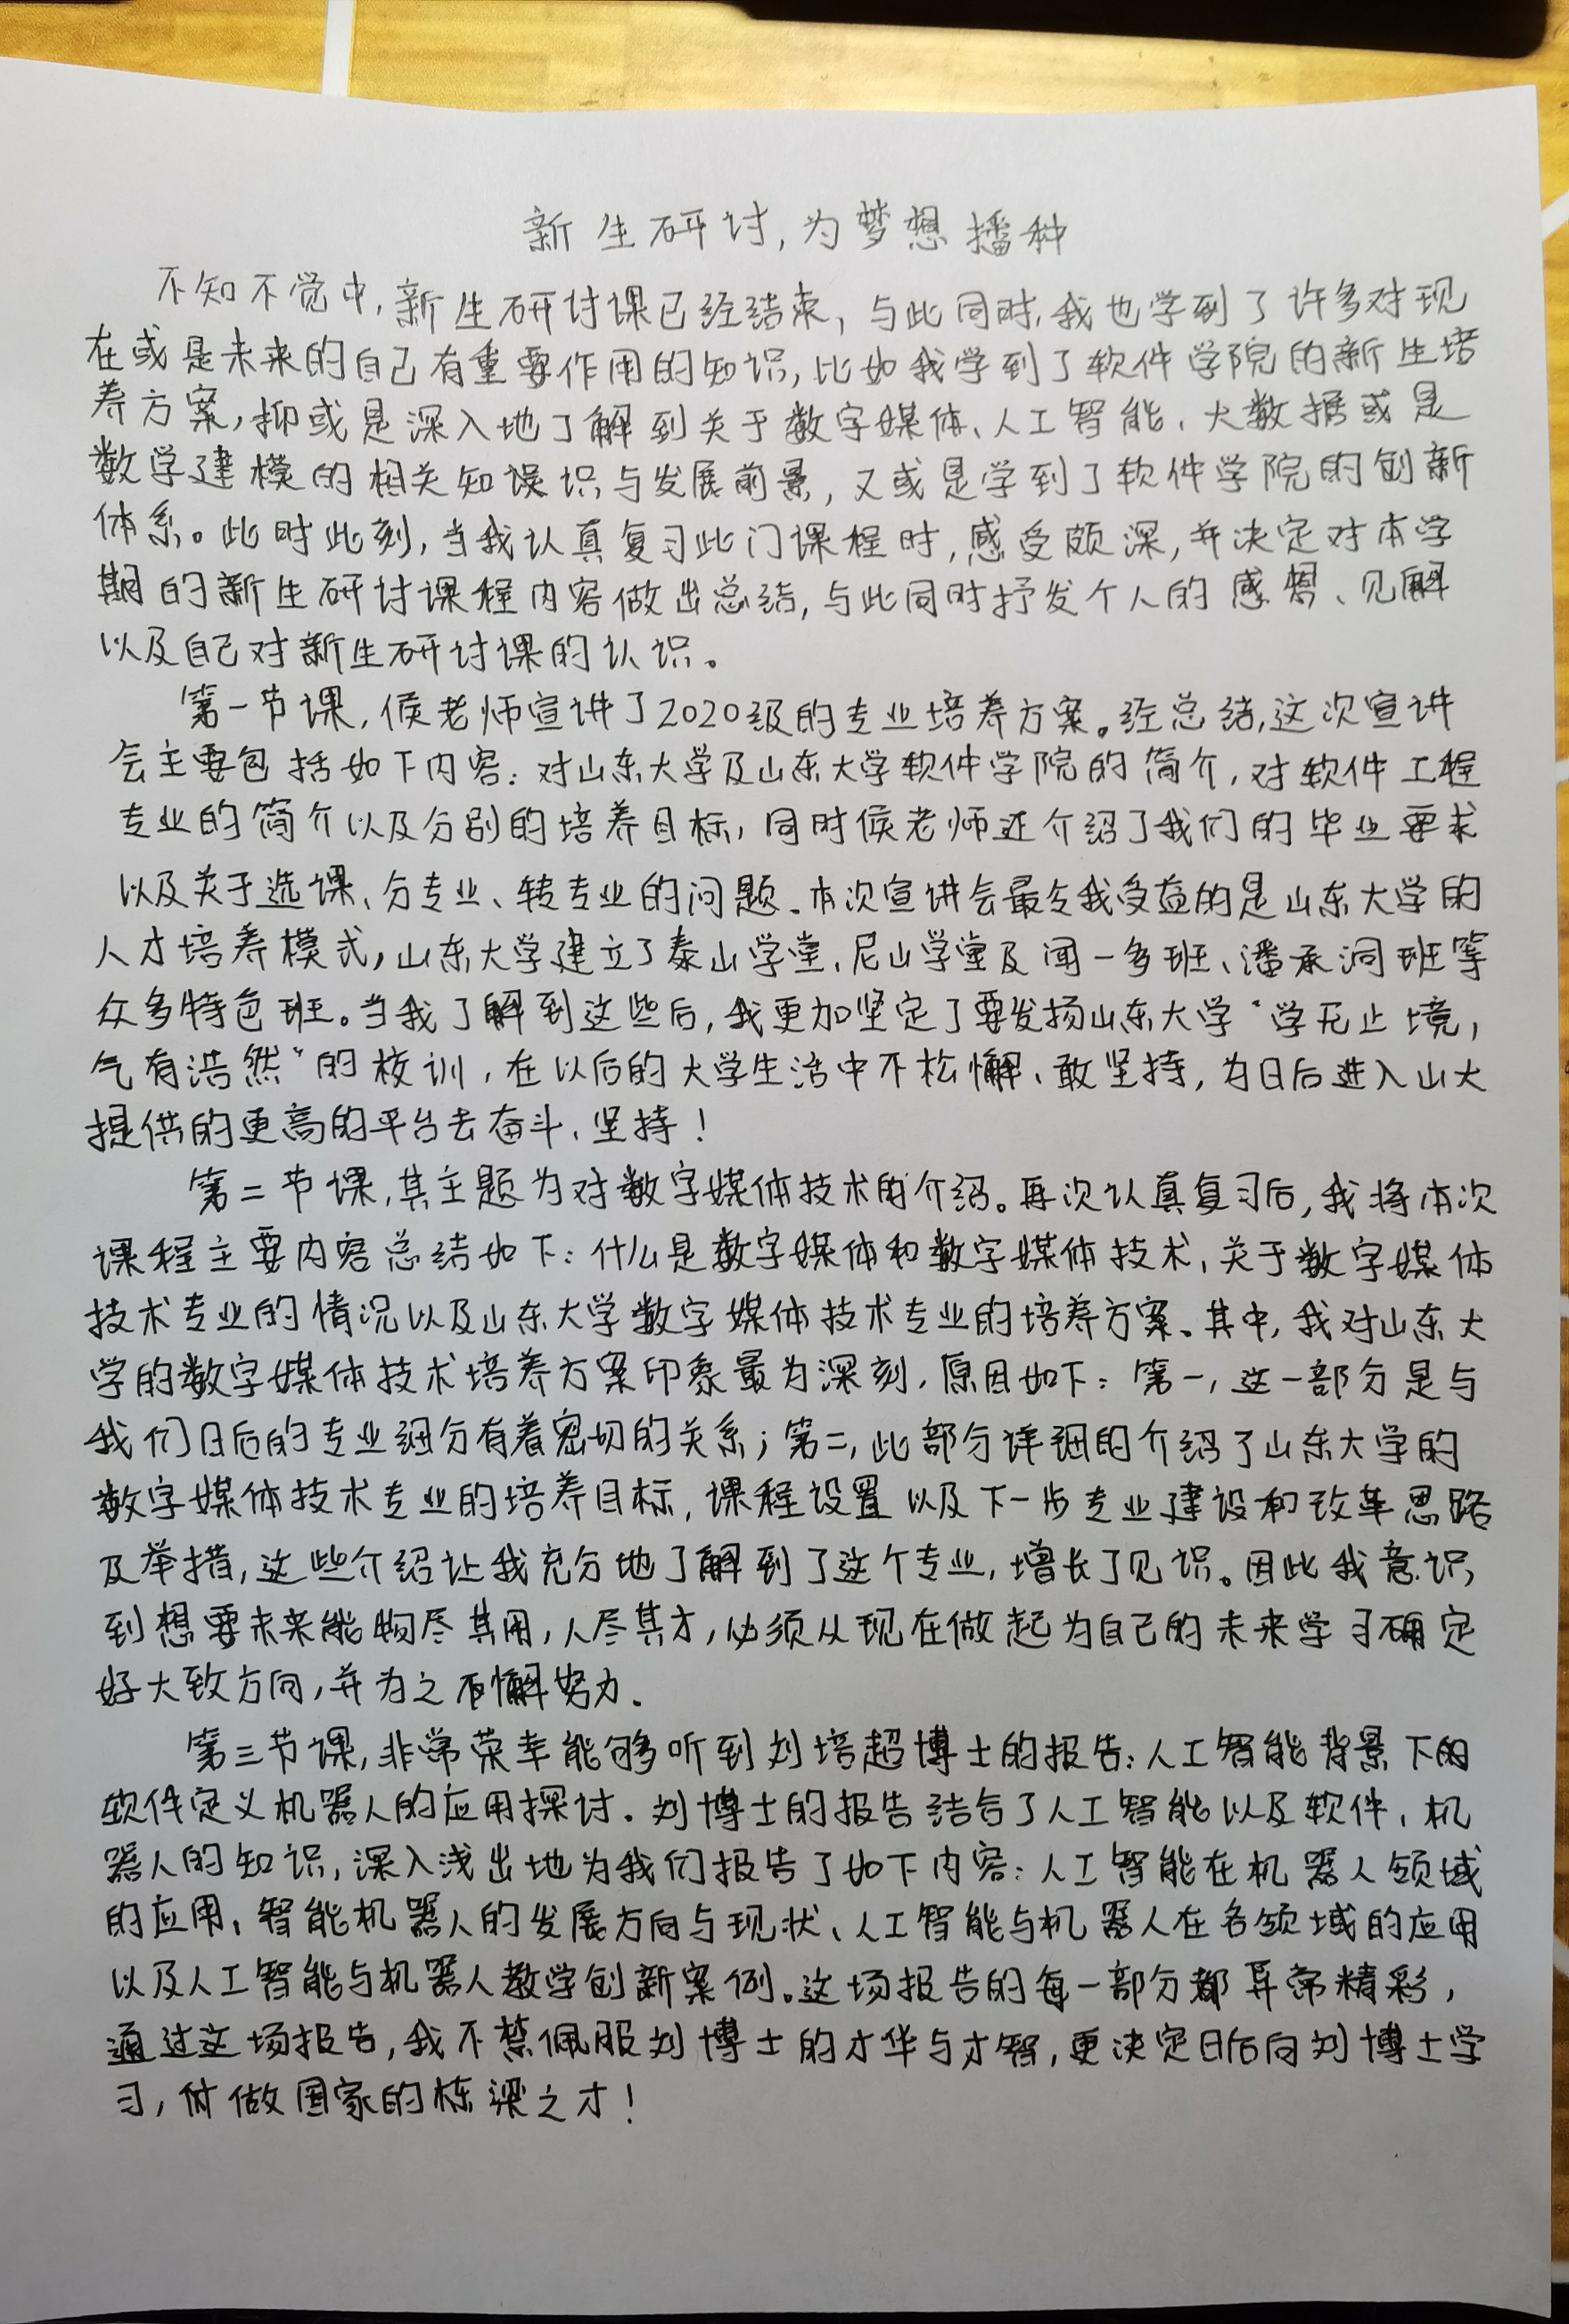 新生研讨,为梦想播种
不知不觉中,新生研讨课已经结束,与此同时,我也学到了许多对现
在或是未来的自己有重要作用的知识,比如我学到了软件学院的新生培
养方案,抑或是深入地了解到关于数字媒体、人工智能、大数据或是
数学建模的相关知识与发展前景,又或是学到了软件学院的创新
体系。此时此刻,当我认真复习此门课程时,感受颇深,并决定对本学
期的新生研讨课程内容做出总结,与此同时抒发个人的感想、见解
以及自己对新生研讨课的认识。
第一节课,侯老师宣讲了2020级的专业培养方案。经总结,这次宣讲
会主要包括如下内容:对山东大学及山东大学软件学院的简介,对软件工程
专业的简介以及分别的培养目标,同时侯老师还介绍了我们的毕业要求
以及关于选课、分专业、转专业的问题。本次宣讲会最令我受益的是山东大学的
人才培养模式,山东大学建立了泰山学堂、尼山学堂及闻一多班、潘承洞班等
众多特色班。当我了解到这些后,我更加坚定了要发扬山东大学“学无止境,
气有浩然”的校训,在以后的大学生活中不松懈、敢坚持,为日后进入山大
提供的更高的平台去奋斗、坚持!
第二节课,其主题为对数字媒体技术的介绍。再次认真复习后,我将本次
课程主要内容总结如下:什么是数字媒体和数字媒体技术,关于数字媒体
技术专业的情况以及山东大学数字媒体技术专业的培养方案。其中,我对山东大
学的数字媒体技术培养方案印象最为深刻,原因如下:第一,这一部分是与
我们日后的专业细分有着密切的关系;第二,此部分详细的介绍了山东大学的
数字媒体技术专业的培养目标,课程设置以及下一步专业建设和改革思路
及举措,这些介绍让我充分地了解到了这个专业,增长了见识。因此我意识
到想要未来能物尽其用,人尽其才,必须从现在做起为自己的未来学习确定
好大致方向,并为之不懈努力。
第三节课,非常荣幸能够听到刘培超博士的报告:人工智能背景下的
软件定义机器人的应用探讨。刘博士的报告结合了人工智能以及软件、机
器人的知识,深入浅出地为我们报告了如下内容:人工智能在机器人领域
的应用、智能机器人的发展方向与现状、人工智能与机器人在各领域的应用
以及人工智能与机器人教学创新案例。这场报告的每一部分都异常精彩,
通过这场报告,我不禁佩服刘博士的才华与才智,更决定日后向刘博士学
习,做国家的栋梁之才!